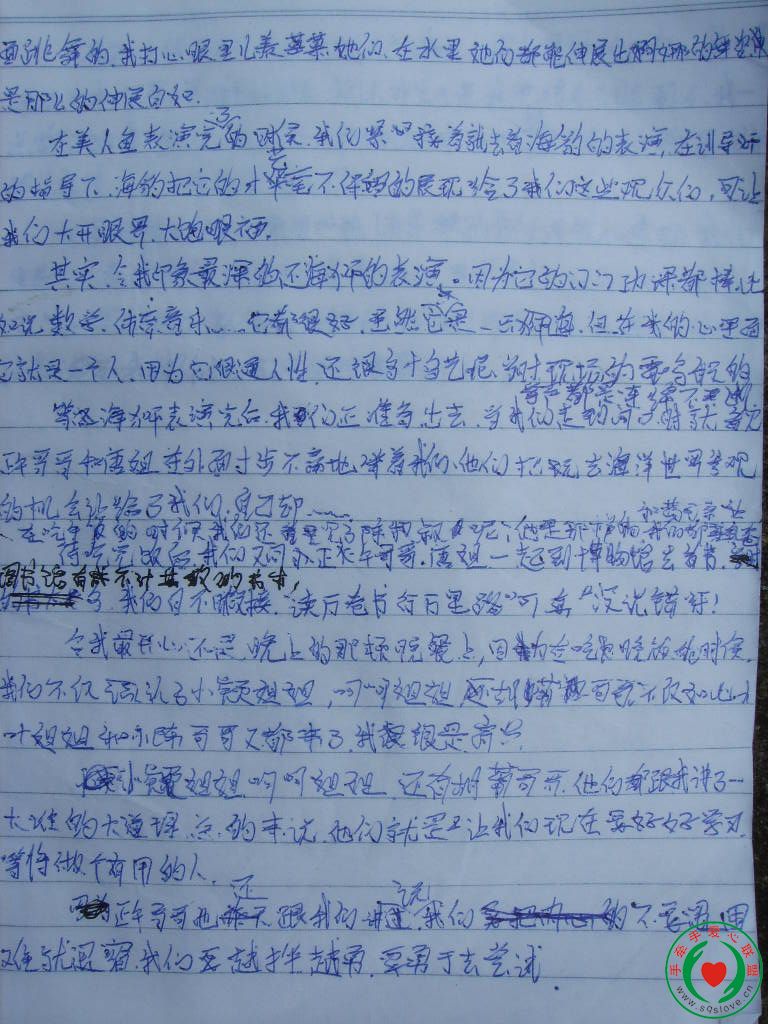 面跳舞的,我打心眼里儿羡慕她们,在水里她们都能伸展出婀娜的舞姿
是那么的伸展自如.
在美人鱼表演完了的时候,我们紧接着就去看海豹的表演,在训导
的指导下,海豹把它的才华毫不保留的展现给了我们这些观众们,可让
我们大开眼界,大饱眼福.
其实,令我印象最深的还海狮的表演。因为它的门门功课都棒,比
如说数学、体育、音乐……它都很好,虽然它是一只海狮,但在我的心里面
它就是一个人,因为它很通人性,还很多才多艺呢,当时现场的
掌声都是连绵不断
等海狮表演完后,我们正准备出去,当我们走到门口时就看见
正午哥哥和唐姐在外面寸步不离地等着我们,他们把玩去海洋世界参观
的机会让给了我们,自己却……
在吃午饭的时候我们还看见了陈叔叔呢,他是那样的
待吃完饭后,我们又同小正午哥哥,唐姐一起到博物馆去看书,
图书馆有数不计其数的书,
我们目不暇接,"读万卷书行万里路"可真没说错呀!
令我最开心还是晚上的那顿晚餐上,因为在吃晚饭的时候,
我们不仅认识了小员姐姐,呵呵姐姐,
叶姐姐和小陈哥哥又都来了,我很是高兴.
小员姐姐呵呵姐姐,还有胡萝哥哥,他们都跟我讲了一
大堆的大道理,总的来说,他们就是让我们现在要好好学习,
等待做个有用的人.
正午哥哥也还跟我们说,我们不要遇困
难就退缩,我们要越挫越勇,要勇于去尝试.
手牵手爱心联盟
www.sqslove.cn